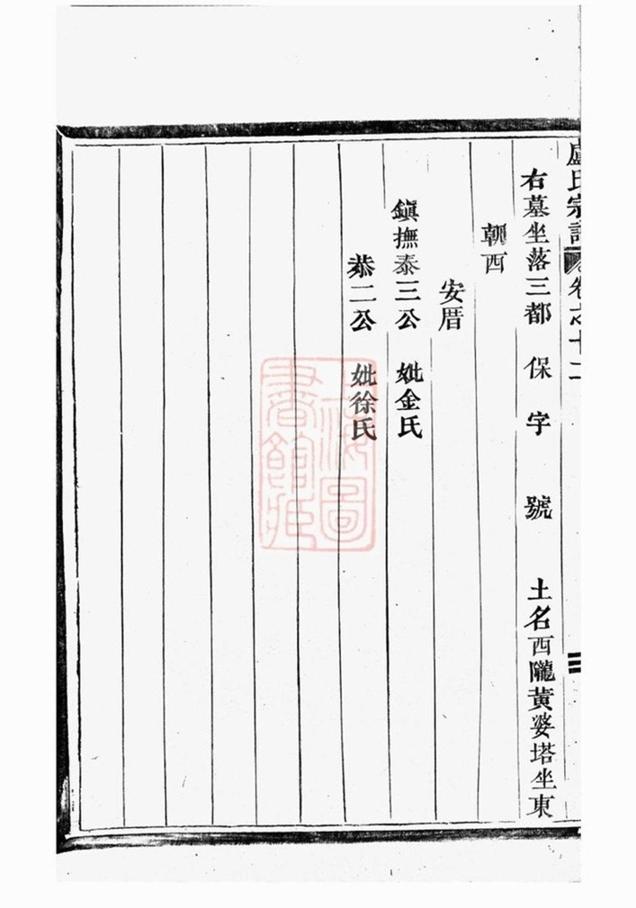 盧氏宗譜 卷之十二
右墓坐落三都 保 字 號 土名西隴黃婆塔坐東
朝西
安厝
鎮撫泰三公 妣金氏
恭二公 妣徐氏
上海圖
書館藏